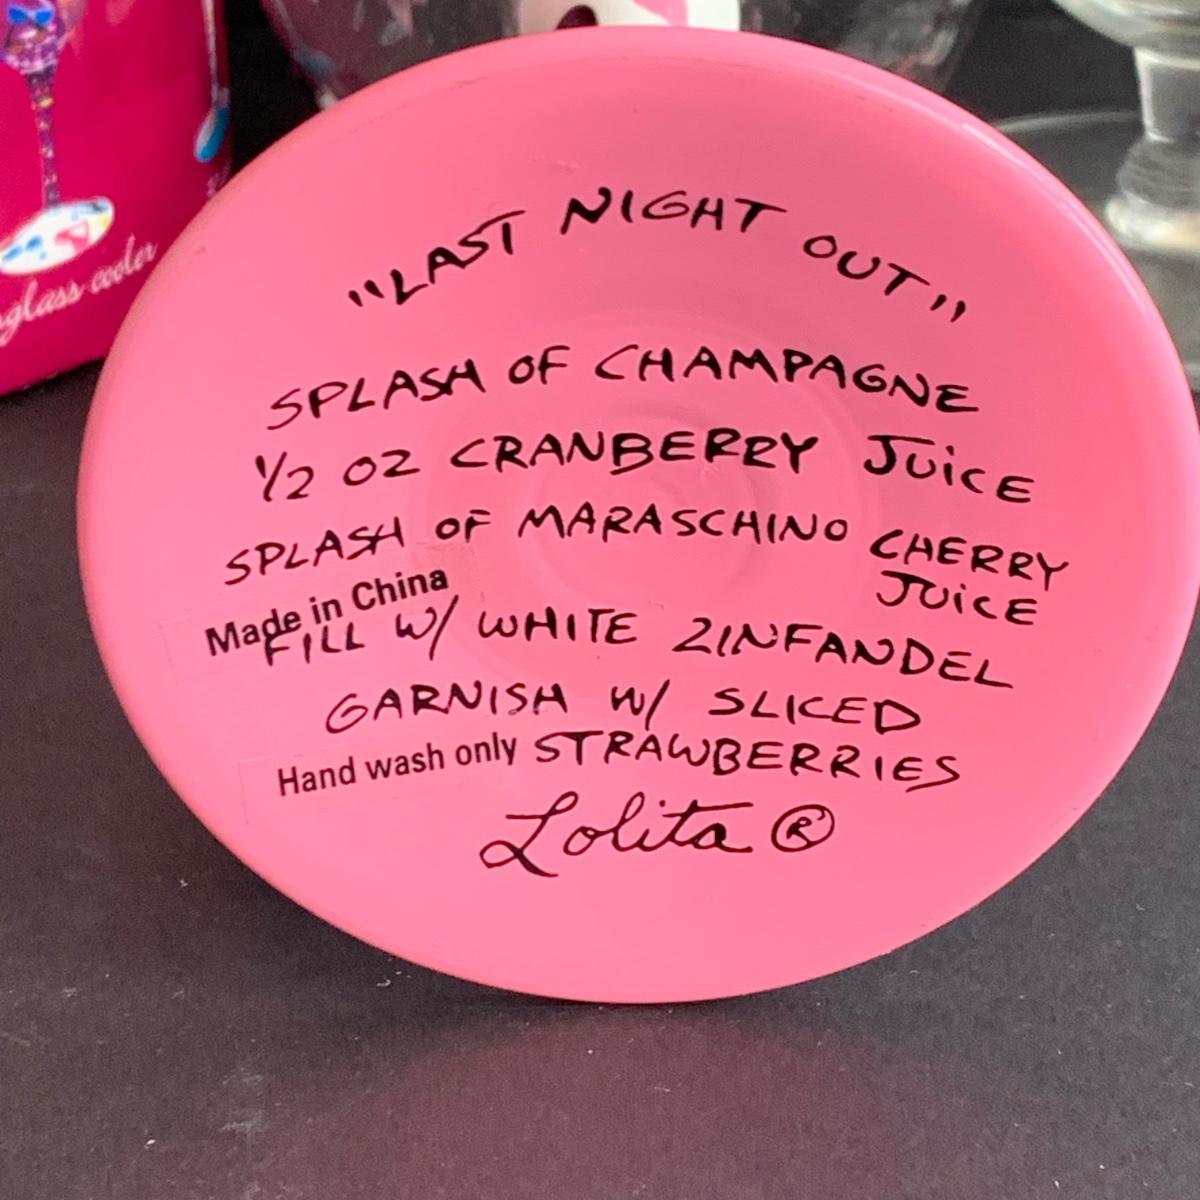 "LAST NIGHT OUT"
SPLASH OF CHAMPAGNE
1/2 OZ CRANBERRY JUICE
SPLASH OF MARASCHINO CHERRY
JUICE
Made in China
FILL W/ WHITE ZINFANDEL
GARNISH W/ SLICED
Hand wash only
STRAWBERRIES
Lolita ®
glass cooler